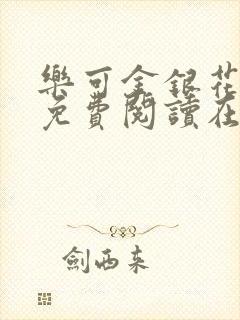 樂可金銀花
免費閱讀在
劍西來